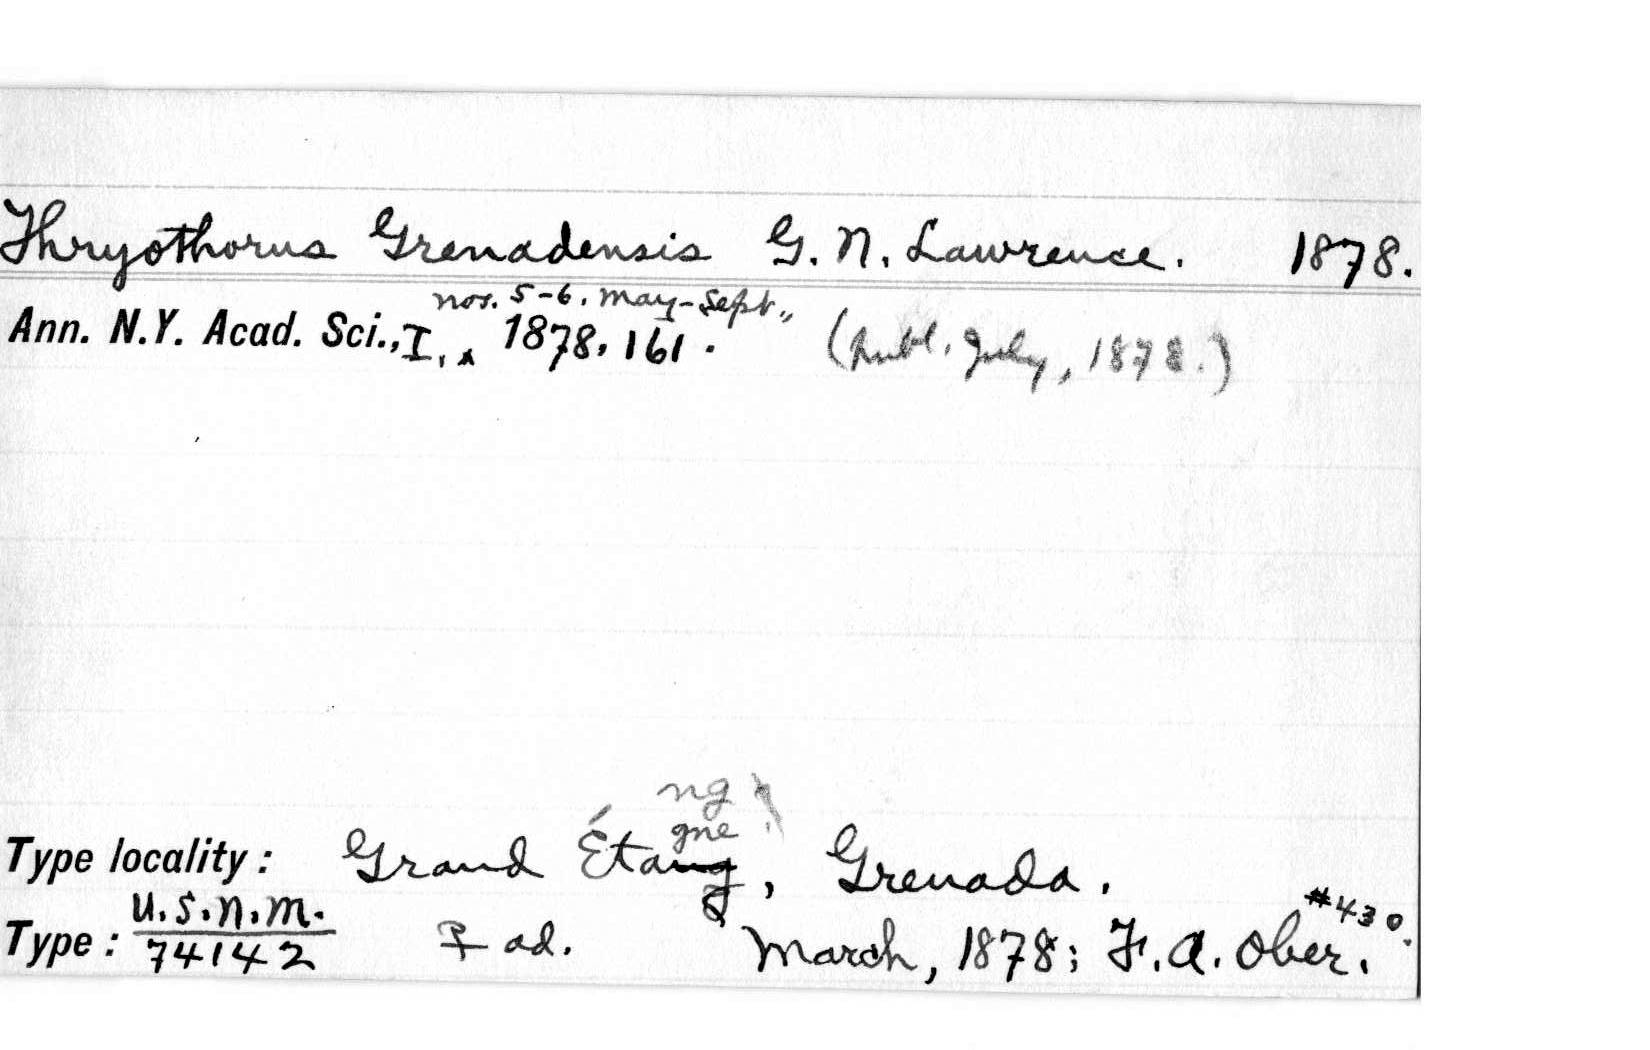 Thryothorus Grenadensis G. N. Lawrence. 1878.
nos. 5-6, May-Sept.,
Ann. N.Y. Acad. Sci., I, ‸ 1878, 161. (publ. July, 1878.)
ng
gne
Type locality: Grand Étang, Grenada.
U.S.N.M. #430.
Type: 74142 ♀ ad. March, 1878; F. A. Ober.